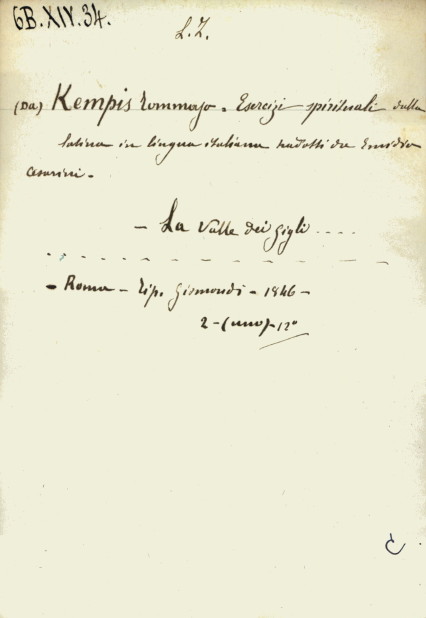 6B.XIV.34.
L.Z.
(Da) Kempis Tommaso. Esercizi spirituali dalla
latina in lingua italiana tradotti da Emidio
Cesarini.
- La Valle dei Gigli ....
- Roma - Tip. Gismondi - 1846 -
2 - (uno) - 12°
C